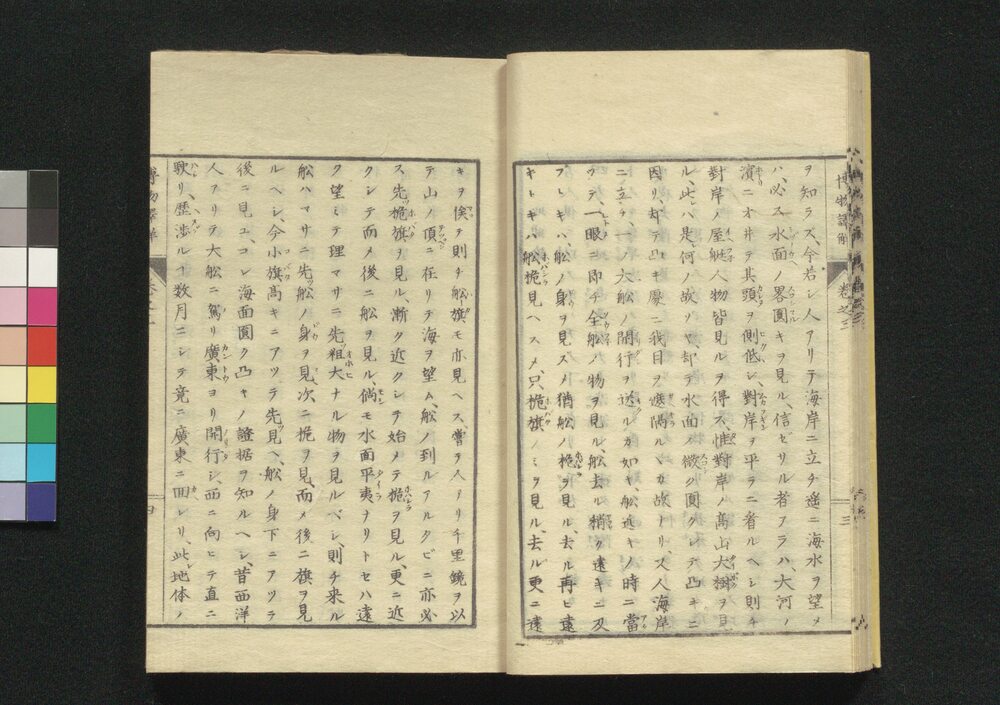 ヲ知ラス、今若シ人アリテ海岸ニ立チ遥ニ海水ヲ望メ
ハ、必ス水面ノ畧圓キヲ見ル、信セサル者アラハ、大河ノ
濱ニオ井テ其頭ヲ側低シ、對岸ヲ平ラニ看ルヘシ則チ
對岸ノ屋艇人物皆見ルヲ得ス、惟對岸ノ髙山大樹ヲ見
ル、此レハ是、何ノ故ソヤ却テ水面微ク圓クシテ凸キニ
因リ、却テ凸キ處ニ我目ヲ遮隔ルガ故ナリ、又人海岸
ニ立チ一ノ大船ノ開行ヲ送ルカ如キ、舩近キノ時ニ當
ツテ、一眼ニ即チ全舩ノ物ヲ見ル、舩去ル稍ク遠キニ及
フトキハ、舩ノ身ヲ見ス乄猶舩ノ桅ヲ見ル、去ル再ヒ遠
キトキハ、舩桅見ヘス乄、只桅旗ノミヲ見ル、去ル更ニ遠
キヲ俟ヲ則チ舩旗モ亦見ヘス、嘗ヲ人アリ千里鏡ヲ以
テ山ノ頂ニ在リテ海ヲ望ム、舩ノ到ルアルタビニ亦必
ス先桅旗ヲ見ル、漸ク近クシテ始メテ桅ヲ見ル、更ニ近
クシテ而メ後ニ舩ヲ見ル、倘モ水面平夷ナリトセハ遠
ク望ミテ理マサニ先粗大ナル物ヲ見ルベシ、則チ来ル
舩ハマサニ先舩ノ身ヲ見、次ニ桅ヲ見、而メ後ニ旗ヲ見
ルヘシ、今小旗髙キニアツテ先見ヘ、舩ノ身下ニアツテ
後ニ見ユ、コレ海面圓ク凸キノ證据ヲ知ルヘシ、昔西洋
人アリテ大舩ニ駕リ廣東ヨリ開行シ、西ニ向ヒテ直ニ
駛リ、歴渉ルヿ数月ニシテ竟ニ廣東ニ囬レリ、此地体ノ
卷之三
三
四